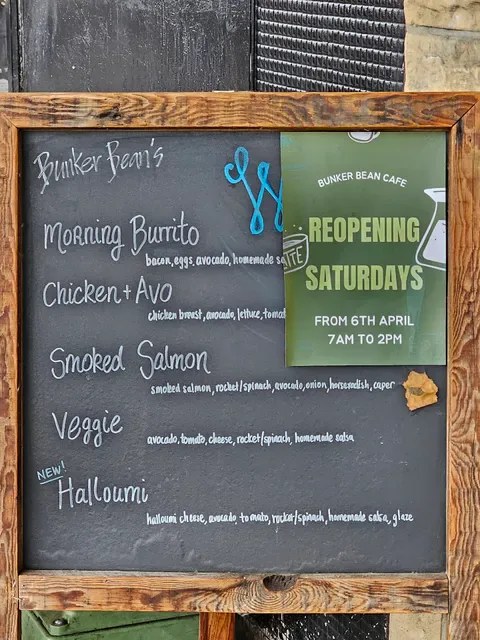 Bunker Bean's
W
BUNKER BEAN CAFE
REOPENING
SATURDAYS
FROM 6TH APRIL
7AM TO 2PM
Morning Burrito
bacon, eggs, avocado, homemade
Chicken + Avo
chicken breast, avocado, lettuce,
Smoked Salmon
smoked salmon, rocket/spinach, avocado, onion, horseradish, caper
Veggie
avocado, tomato, cheese, rocket/spinach, homemade salsa
NEW!
Halloumi
halloumi cheese, avocado, tomato, rocket/spinach, homemade salsa, glaze